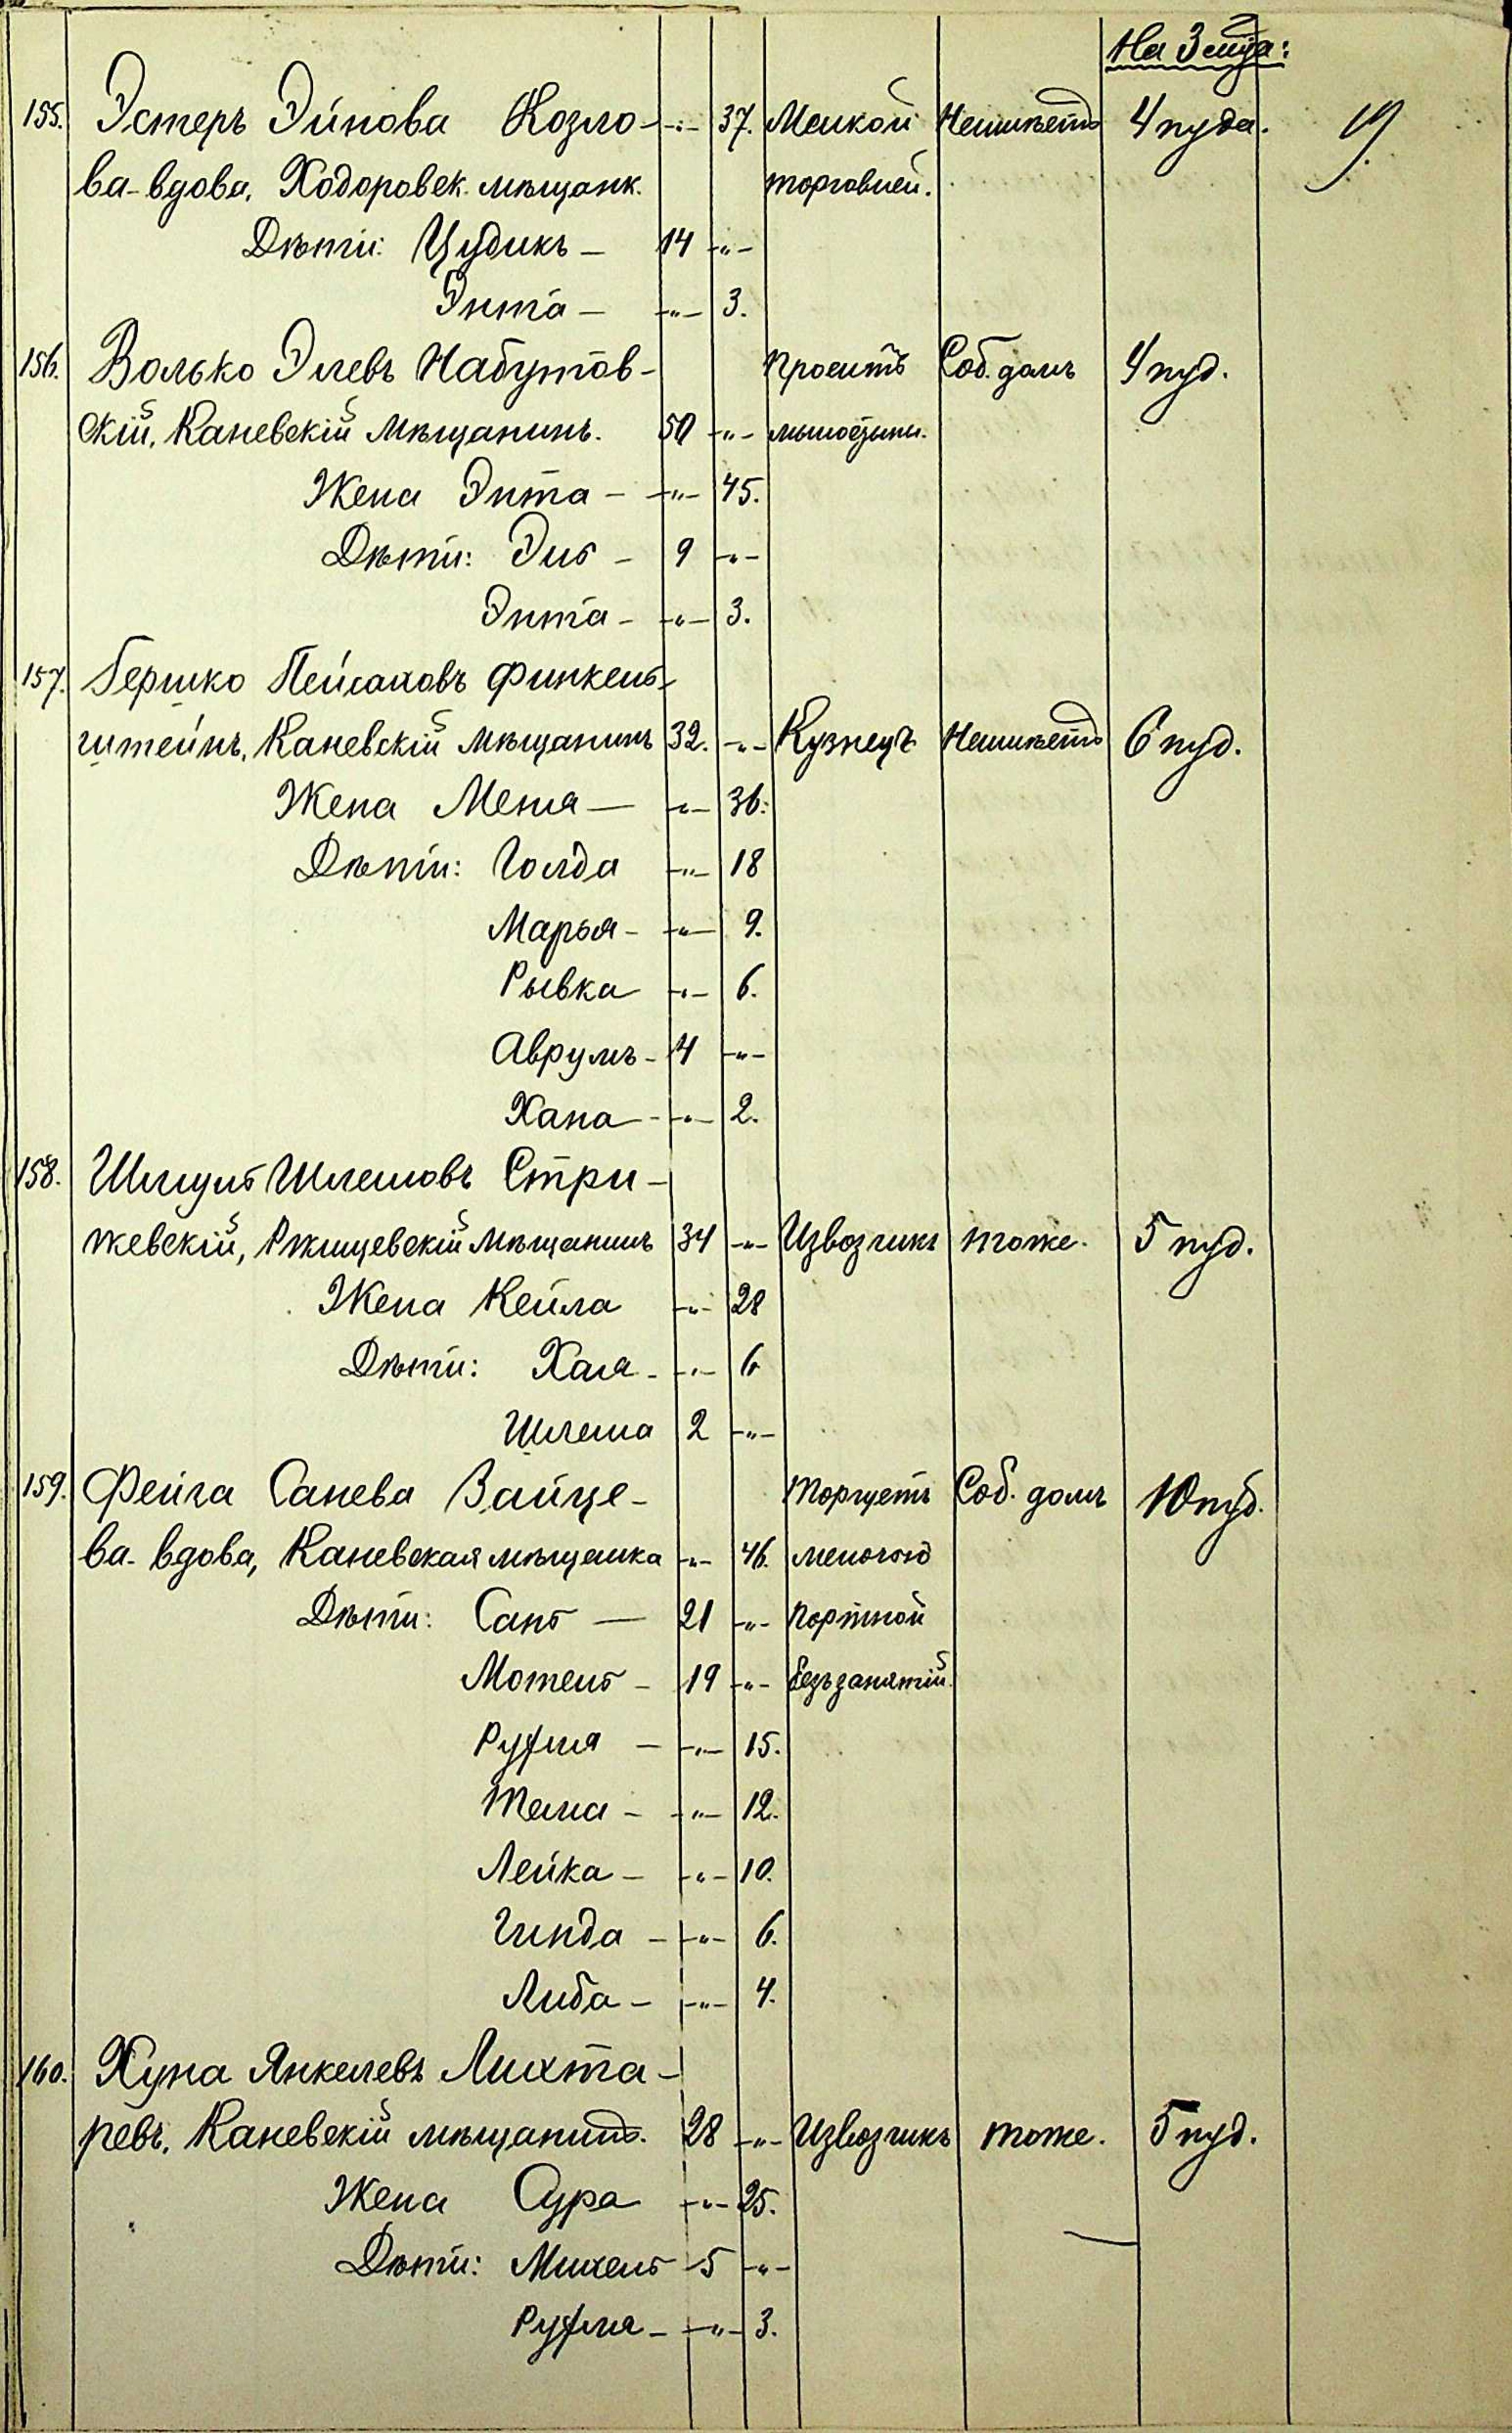 На 3 мца:
155. Эстеръ Эйнова Козло- -"- 37. Мелкой Неимѣетъ 4 пуда. 19.
ва-вдова, Ходоровск. мѣщанк. торговлей.
Дѣти: Цудикъ - 14 -"-
Энта - -"- 3.
156. Волько Элевъ Набутов- Проситъ Соб. домъ 4 пуд.
скій, Каневскій мѣщанинъ. 50 -"- милостыни.
Жена Энта - -"- 45.
Дѣти: Эль - 9 -"-
Энта - -"- 3.
157. Гершко Пейсаховъ Финкель-
штейнъ, Каневскій мѣщанинъ 32. -"- Кузнецъ Неимѣетъ 6 пуд.
Жена Меня - -"- 36.
Дѣти: Голда -"- 18
Марья - -"- 9.
Рывка -"- 6.
Аврумъ - 4 -"-
Хана - -"- 2.
158. Шмуль Шлемовъ Стри-
жевскій, Ржищевскій мѣщанинъ 34 -"- Извозчикъ тоже. 5 пуд.
Жена Кейла -"- 28
Дѣти: Хая - -"- 6
Шлема 2 -"-
159. Фейга Санева Зайце- Торгуетъ Соб. домъ 10 пуд.
ва-вдова, Каневская мѣщанка -"- 46. мелочью
Дѣти: Сань - 21 -"- Портной
Мотель - 19 -"- Безъ занятій.
Рухля - -"- 15.
Тема - -"- 12.
Лейка - -"- 10.
Гинда - -"- 6.
Либа - -"- 4.
160. Хуна Янкелевъ Лихта-
ревъ, Каневскій мѣщанинъ. 28 -"- Извозчикъ тоже. 5 пуд.
Жена Сура -"- 25.
Дѣти: Михель 5 -"-
Рухля - -"- 3.